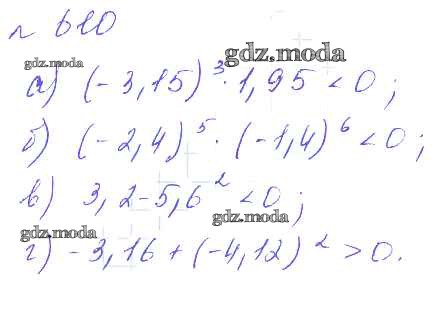 № 610
gdz.moda
gdz.moda
а) (-3,15)³ · 1,95 < 0;
б) (-2,4)⁵ · (-1,4)⁶ < 0;
в) 3,2 - 5,6² < 0;
gdz.moda
gdz.moda
г) -3,16 + (-4,12)² > 0.